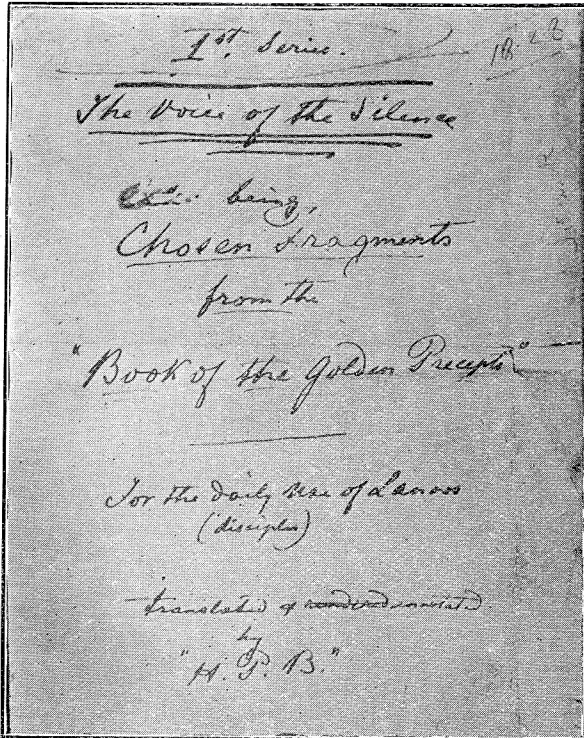 1st. Series.
The Voice of the Silence
being,
Chosen Fragments
from the
"Book of the Golden Precepts"
For the daily use of Lanoos
(disciples)
translated & rendered annotated
by
"H. P. B."